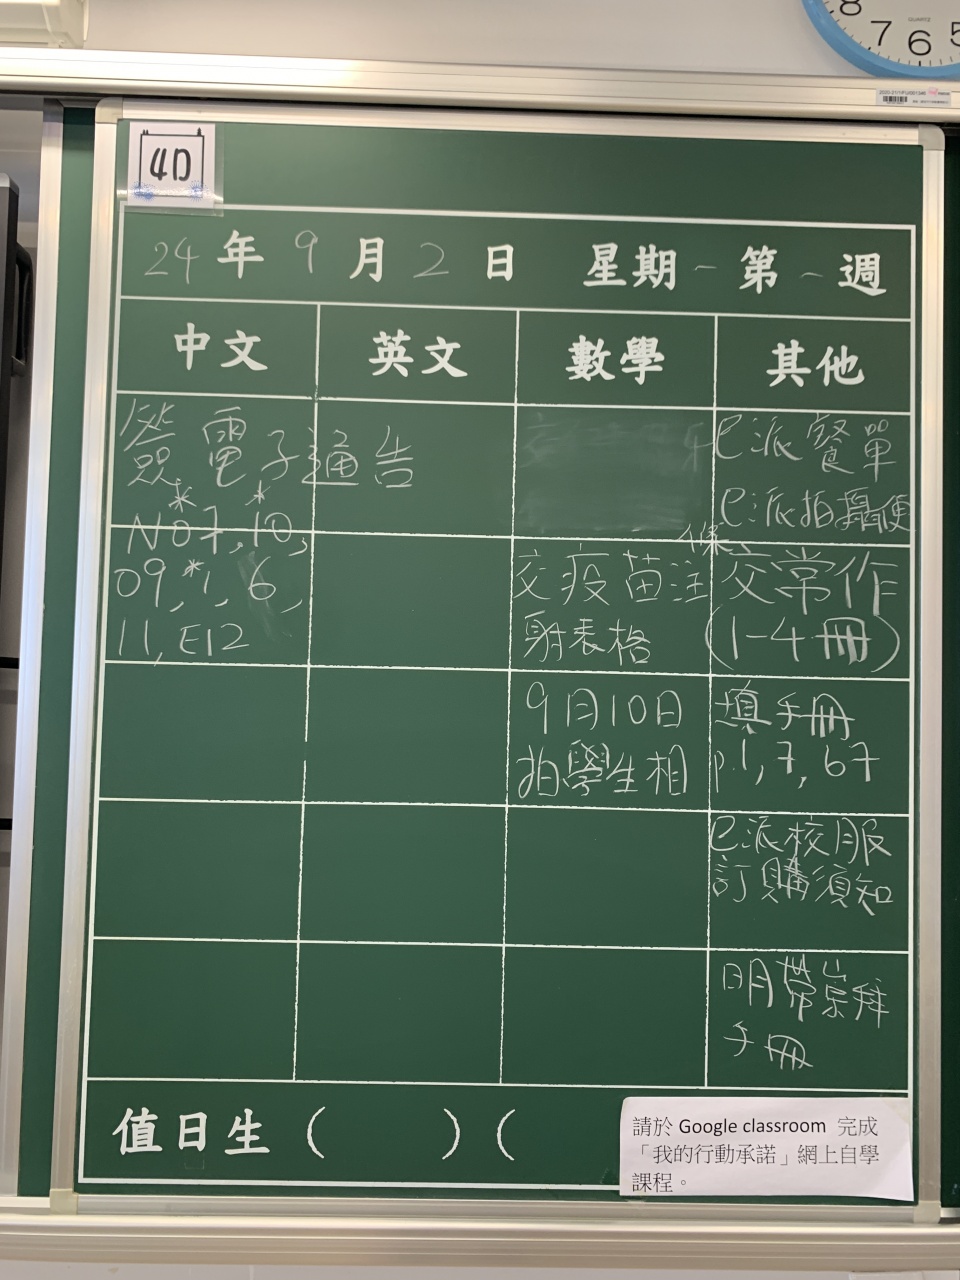 8 7 6 5
QUARTZ
4D
24年9月2日 星期一 第一週
中文 英文 數學 其他
簽電子通告
*  *
NO7, 10,
09, *1, 6,
11, E12
交疫苗注
射表格
9月10日
拍學生相
已派餐單
已派拍攝便
條
交常作
(1-4冊)
填手冊
p.1, 7, 67
已派校服
訂購須知
明帶崇拜
手冊
值日生 (    ) (
請於 Google classroom 完成
「我的行動承諾」網上自學
課程。